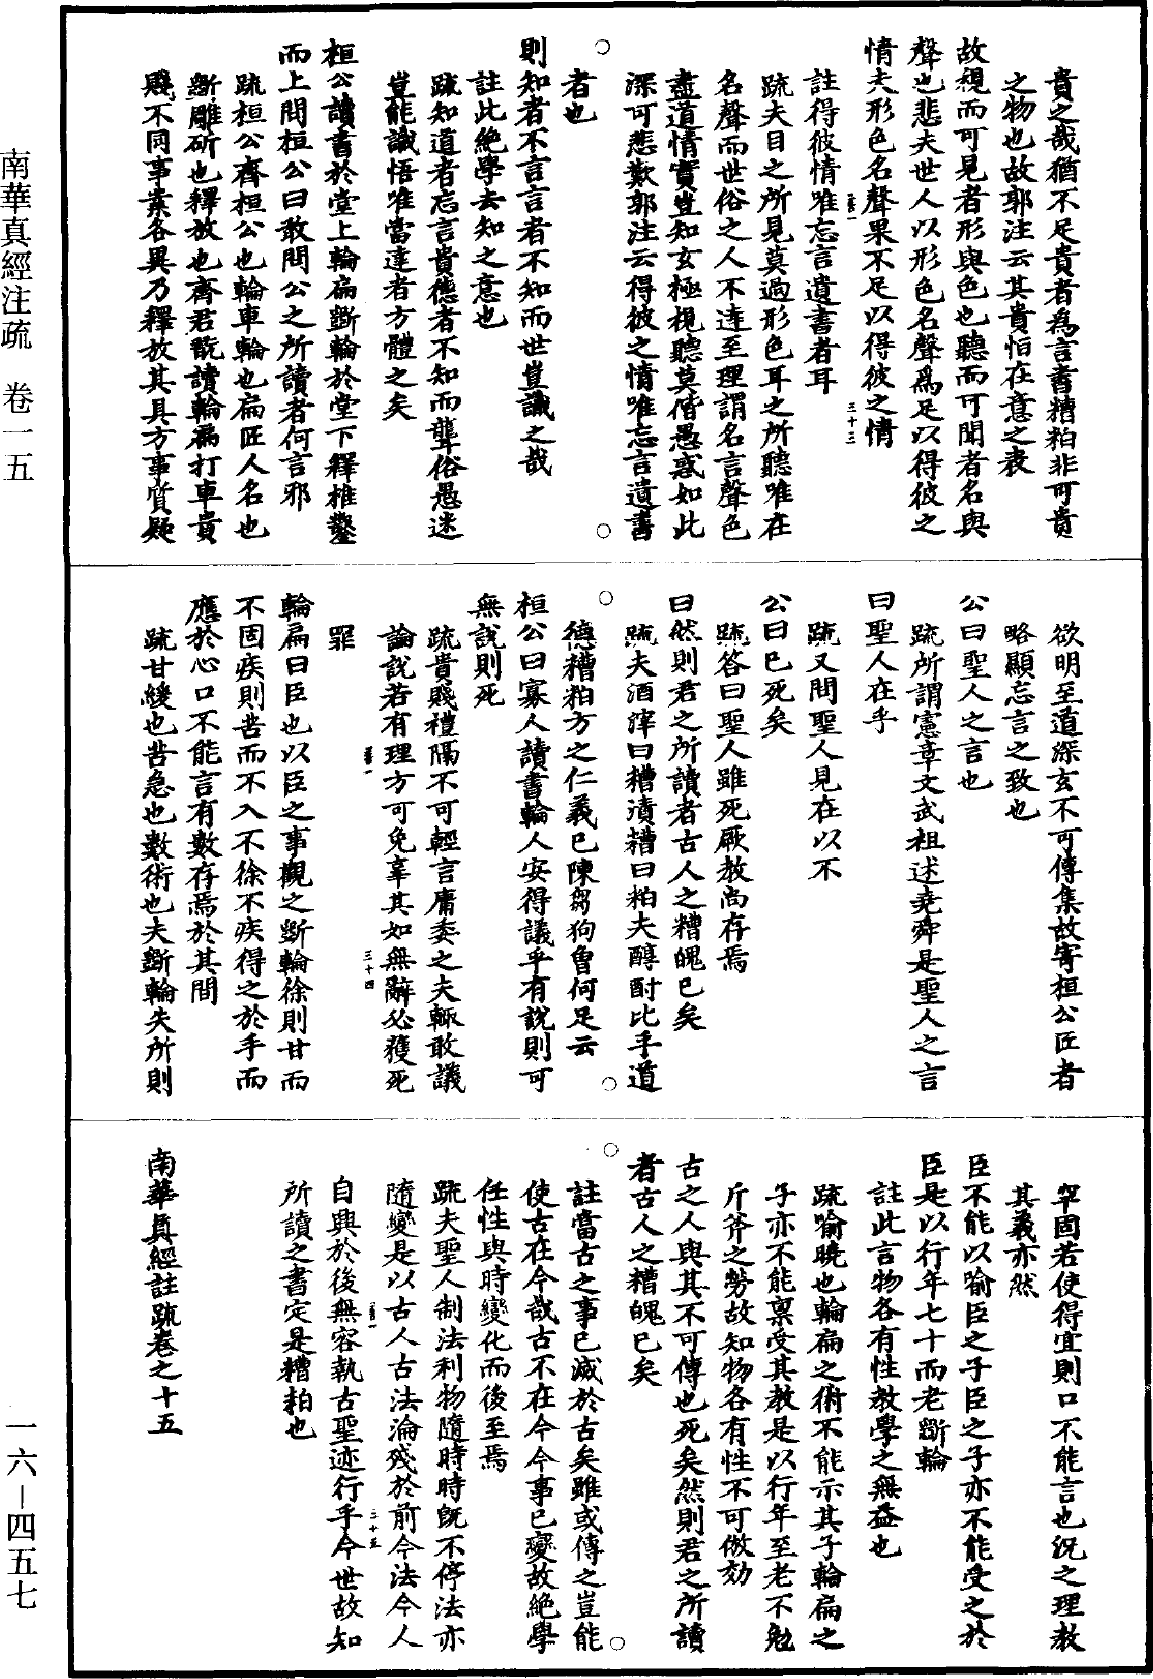 貴之哉猶不足貴者為言書糟粕非可貴
之物也故郭注云其貴恒在意之表
故視而可見者形與色也聽而可聞者名與
聲也悲夫世人以形色名聲為足以得彼之
情夫形色名聲果不足以得彼之情
註得彼情唯忘言遺書者耳
疏夫目之所見莫過形色耳之所聽唯在
名聲而世俗之人不達至理謂名言聲色
盡道情實豈知玄極視聽莫偕愚惑如此
深可悲歎郭注云得彼之情唯忘言遺書
者也
則知者不言言者不知而世豈識之哉
註此絶學去知之意也
疏知道者忘言貴德者不知而聾俗愚迷
豈能識悟唯當達者方體之矣
桓公讀書於堂上輪扁斲輪於堂下釋椎鑿
而上問桓公曰敢問公之所讀者何言邪
疏桓公齊桓公也輪車輪也扁匠人名也
斲雕斫也釋放也齊君既讀輪扁打車貴
賤不同事業各異乃釋放其具方事質疑
三十三
欲明至道深玄不可傳集故寄桓公匠者
略顯忘言之致也
公曰聖人之言也
疏所謂憲章文武祖述堯舜是聖人之言
曰聖人在乎
疏又問聖人見在以不
公曰已死矣
疏答曰聖人雖死厥教尚存焉
曰然則君之所讀者古人之糟魄已矣
疏夫酒滓曰糟漬糟曰粕夫醇酎比乎道
德糟粕方之仁義已陳芻狗曾何足云
桓公曰寡人讀書輪人安得議乎有說則可
無說則死
疏貴賤禮隔不可輕言庸委之夫輒敢議
論說若有理方可免辜其如無辭必獲死
罪
輪扁曰臣也以臣之事觀之斲輪徐則甘而
不固疾則苦而不入不徐不疾得之於手而
應於心口不能言有數存焉於其間
疏甘緩也苦急也數術也夫斲輪失所則
三十四
牢固若使得宜則口不能言也況之理教
其義亦然
臣不能以喻臣之子臣之子亦不能受之於
臣是以行年七十而老斲輪
註此言物各有性教學之無益也
疏喻曉也輪扁之術不能示其子輪扁之
子亦不能禀受其教是以行年至老不勉
斤斧之勞故知物各有性不可倣効
古之人與其不可傳也死矣然則君之所讀
者古人之糟魄已矣
註當古之事已滅於古矣雖或傳之豈能
使古在今哉古不在今今事已變故絶學
任性與時變化而後至焉
疏夫聖人制法利物隨時時既不停法亦
隨變是以古人古法淪殘於前今法今人
自興於後無容執古聖迹行乎今世故知
所讀之書定是糟粕也
三十五
南華真經註疏卷之十五
南華真經注疏 卷一五
一六—四五七